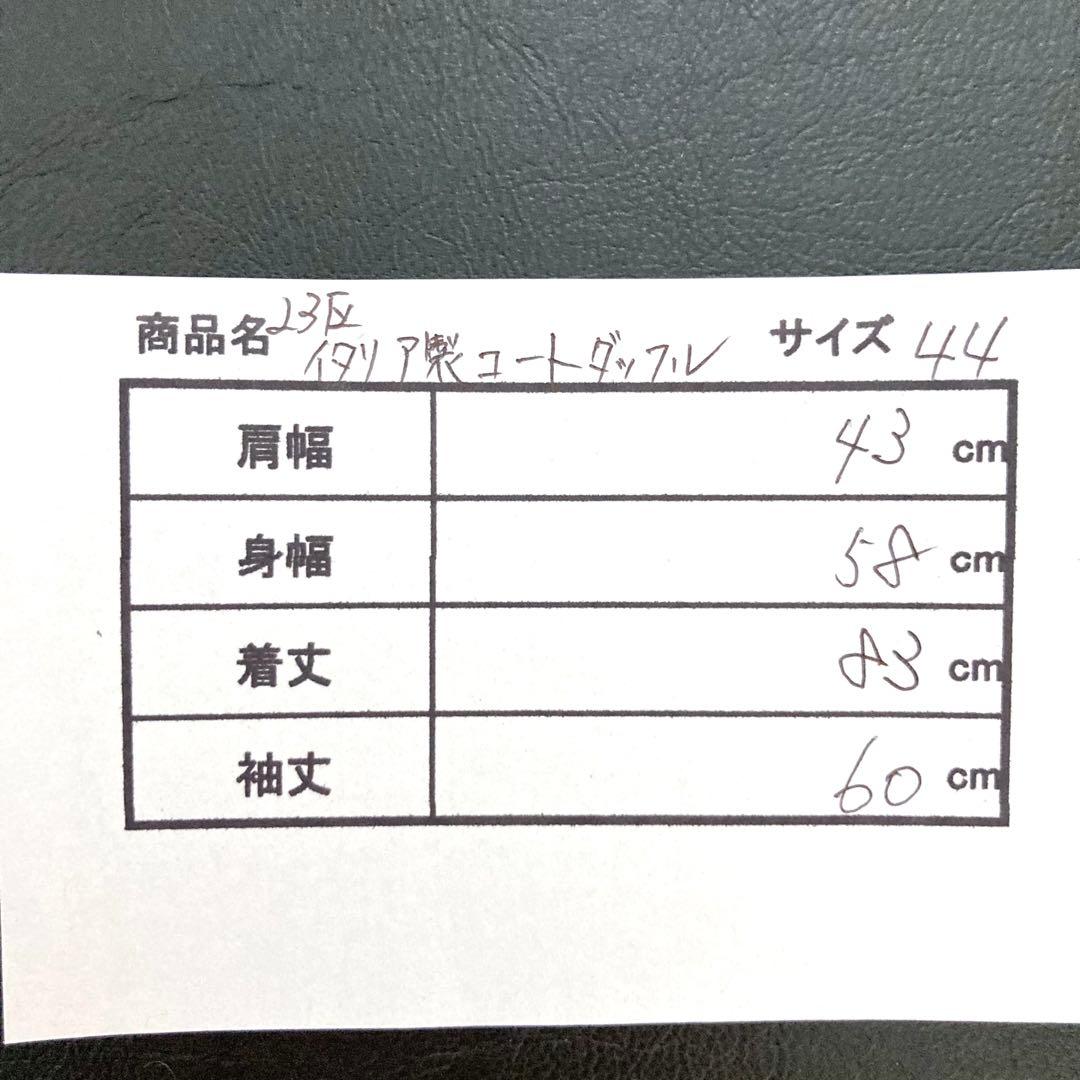 商品名 23区 サイズ 44
イタリア製コートダッフル
肩幅 43 cm
身幅 58 cm
着丈 83 cm
袖丈 60 cm